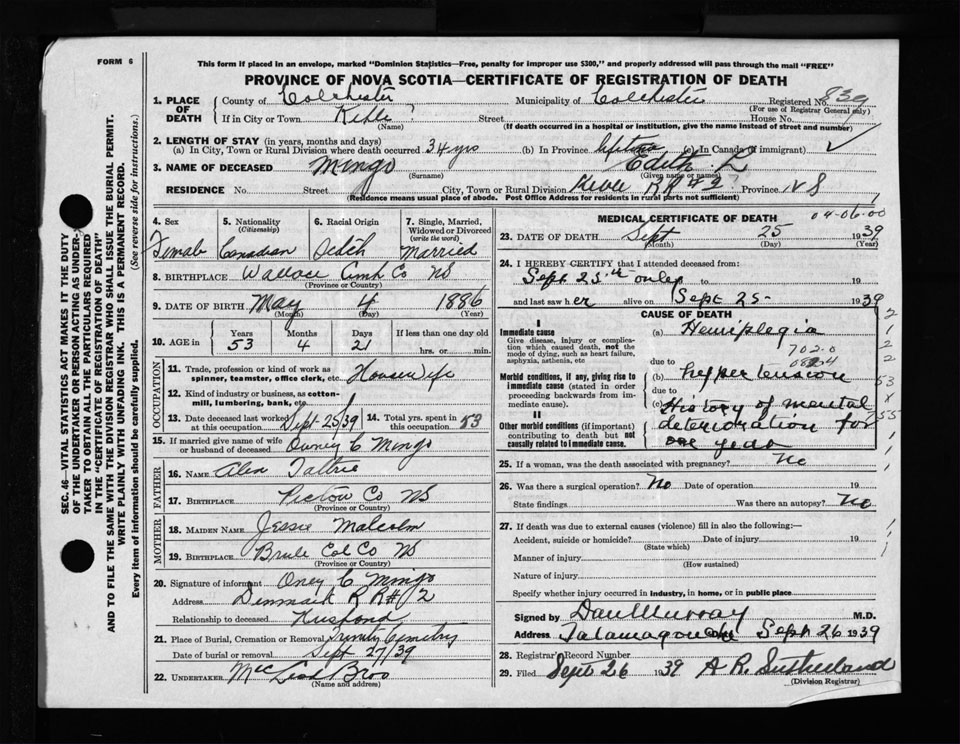 FORM 6
This form if placed in an envelope, marked "Dominion Statistics—Free, penalty for improper use $300," and properly addressed will pass through the mail "FREE"
PROVINCE OF NOVA SCOTIA—CERTIFICATE OF REGISTRATION OF DEATH
SEC. 46—VITAL STATISTICS ACT MAKES IT THE DUTY
OF THE UNDERTAKER OR PERSON ACTING AS UNDER-
TAKER TO OBTAIN ALL THE PARTICULARS REQUIRED
IN THE "CERTIFICATE OF REGISTRATION OF DEATH"
AND TO FILE THE SAME WITH THE DIVISION REGISTRAR WHO SHALL ISSUE THE BURIAL PERMIT.
WRITE PLAINLY WITH UNFADING INK. THIS IS A PERMANENT RECORD.
Every item of information should be carefully supplied. (See reverse side for instructions.)
1. PLACE OF DEATH County of Colchester Municipality of Colchester Registered No. 839
(For use of Registrar General only)
If in City or Town Street House No.
(Name) (If death occurred in a hospital or institution, give the name instead of street and number)
2. LENGTH OF STAY (in years, months and days)
(a) In City, Town or Rural Division where death occurred 34 yrs (b) In Province lifetime (c) In Canada (if immigrant)
3. NAME OF DECEASED Mingo Edith L
(Surname) (Given name or names)
RESIDENCE No. Street City, Town or Rural Division RR # 2 Province NS
(Residence means usual place of abode. Post Office Address for residents in rural parts not sufficient)
4. Sex Female
5. Nationality (Citizenship) Canadian
6. Racial Origin
7. Single, Married, Widowed or Divorced (write the word) Married
8. BIRTHPLACE Wallace Cumb Co NS
(Province or Country)
9. DATE OF BIRTH May 4 1886
(Month) (Day) (Year)
10. AGE in Years 53 Months 4 Days 21 If less than one day old hrs. or min.
OCCUPATION
11. Trade, profession or kind of work as spinner, teamster, office clerk, etc. Housewife
12. Kind of industry or business, as cotton-mill, lumbering, bank, etc.
13. Date deceased last worked at this occupation Sept 25/39 14. Total yrs. spent in this occupation 53
15. If married give name of wife or husband of deceased Oxney C Mingo
FATHER
16. NAME Alex
17. BIRTHPLACE Pictou Co NS
(Province or Country)
MOTHER
18. MAIDEN NAME Jessie Malcolm
19. BIRTHPLACE Brule Col Co NS
(Province or Country)
20. Signature of informant Oxney C Mingo
Address Denmark R R # 2
Relationship to deceased Husband
21. Place of Burial, Cremation or Removal Trinity Cemetry
Date of burial or removal Sept 27/39
22. UNDERTAKER MacLeod Bros
(Name and address)
MEDICAL CERTIFICATE OF DEATH
04-06.00
23. DATE OF DEATH Sept 25 1939
(Month) (Day) (Year)
24. I HEREBY CERTIFY that I attended deceased from:
Sept 25th only to 19
and last saw her alive on Sept 25- 1939
CAUSE OF DEATH
I
Immediate cause
Give disease, injury or complication which caused death, not the mode of dying, such as heart failure, asphyxia, asthenia, etc
(a) Hemiplegia
702.0
due to
Morbid conditions, if any, giving rise to immediate cause (stated in order proceeding backwards from immediate cause).
(b) hypertension
due to
(c) History of mental
II
Other morbid conditions (if important) contributing to death but not causally related to immediate cause.
deterioration for
one year
25. If a woman, was the death associated with pregnancy? No
26. Was there a surgical operation? No Date of operation 19
State findings Was there an autopsy? No
27. If death was due to external causes (violence) fill in also the following:—
Accident, suicide or homicide? Date of injury 19
(State which)
Manner of injury
(How sustained)
Nature of injury
Specify whether injury occurred in industry, in home, or in public place
Signed by Dan Murray M.D.
Address Tatamagouche Sept 26 1939
28. Registrar's Record Number
29. Filed Sept 26 1939 A R. Sutherland
(Division Registrar)